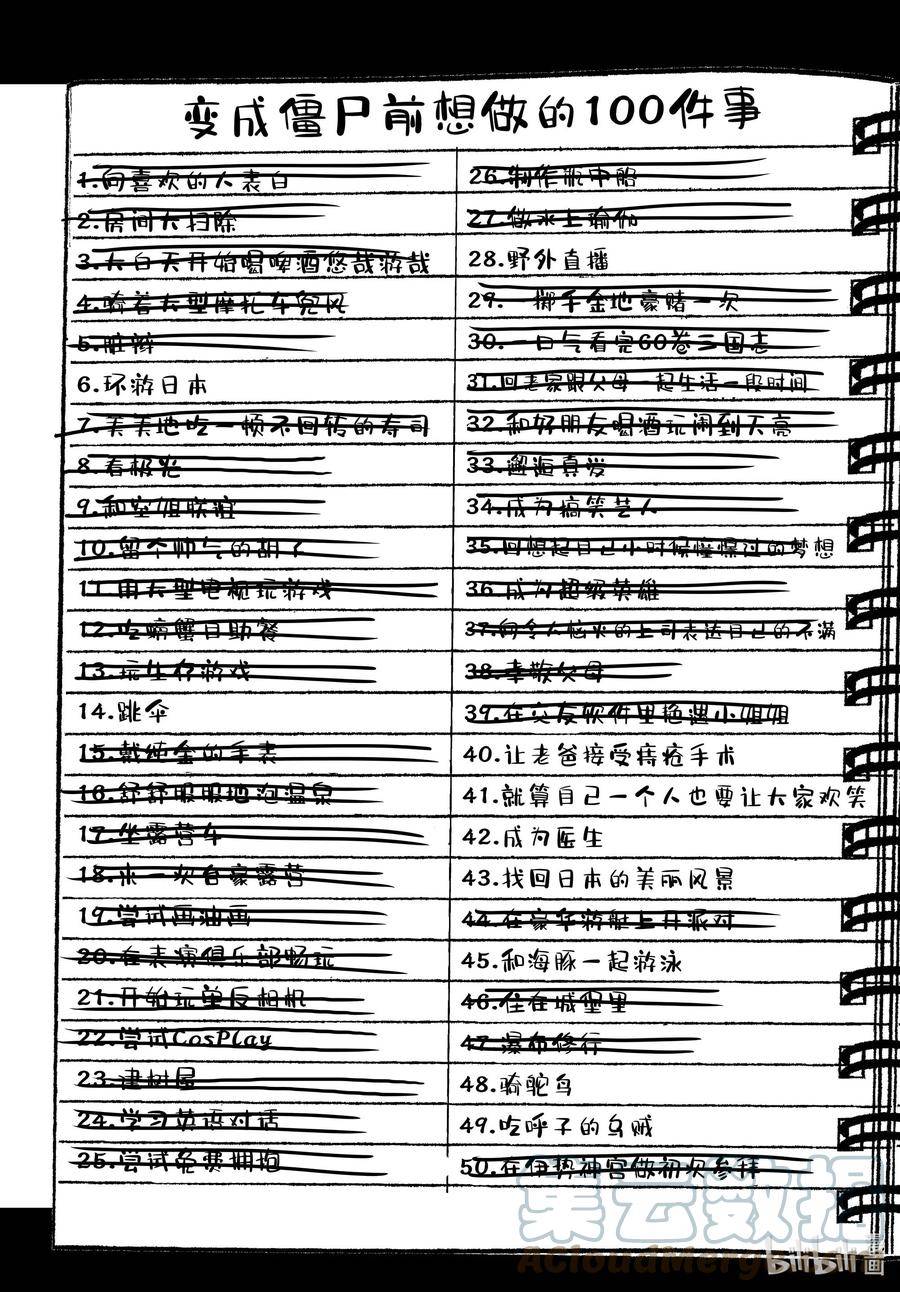 变成僵尸前想做的100件事
1.向喜欢的人表白
2.房间大扫除
3.大白天开始喝啤酒悠哉游哉
4.骑着大型摩托车兜风
5.脏辫
6.环游日本
7.美美地吃一顿不回转的寿司
8.看极光
9.和空姐联谊
10.留个帅气的胡子
11.用大型电视玩游戏
12.吃螃蟹自助餐
13.玩生存游戏
14.跳伞
15.戴纯金的手表
16.舒舒服服地泡温泉
17.坐露营车
18.来一次自豪露营
19.尝试画油画
20.在表演俱乐部畅玩
21.开始玩单反相机
22.尝试CosPlay
23.建树屋
24.学习英语对话
25.尝试免费拥抱
26.制作瓶中船
27.做水上瑜伽
28.野外直播
29.一掷千金地豪赌一次
30.一口气看完60卷三国志
31.回老家跟父母一起生活一段时间
32.和好朋友喝酒玩闹到天亮
33.邂逅真爱
34.成为搞笑艺人
35.回想起自己小时候憧憬过的梦想
36.成为超级英雄
37.向令人恼火的上司表达自己的不满
38.孝敬父母
39.在交友软件里艳遇小姐姐
40.让老爸接受痔疮手术
41.就算自己一个人也要让大家欢笑
42.成为医生
43.找回日本的美丽风景
44.在豪华游艇上开派对
45.和海豚一起游泳
46.住在城堡里
47.瀑布修行
48.骑鸵鸟
49.吃呼子的乌贼
50.在伊势神宫做初次参拜
集云数据
ACloudMerg
bilibili漫画